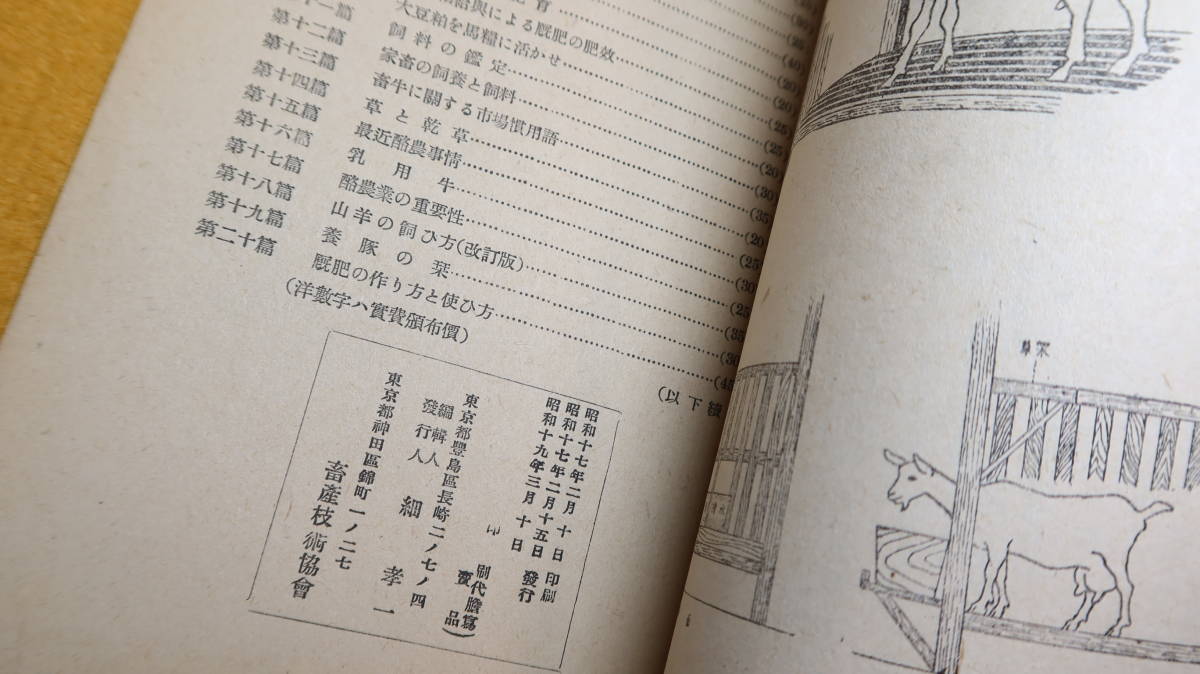 第十二篇 大豆粕を馬糧に活かせ……(20)
第十三篇 飼料の鑑定……(20)
第十四篇 家畜の飼養と飼料……(25)
第十五篇 畜牛に關する市場慣用語……(25)
第十六篇 草と乾草……(20)
第十七篇 最近酪農事情……(30)
第十八篇 乳用牛……(35)
第十九篇 酪農業の重要性……(20)
第二十篇 山羊の飼ひ方(改訂版)……(25)
養豚の栞……(30)
厩肥の作り方と使ひ方……
(洋數字ハ實費頒布價)
(以下續
昭和十七年二月十日印刷
昭和十七年二月十五日發行
昭和十九年三月十日
印刷代謄寫
實品)
東京都豐島區長崎二ノ七ノ四
編輯人
發行人 細孝一
東京都神田區錦町一ノ二七
畜產技術協會
草架
6